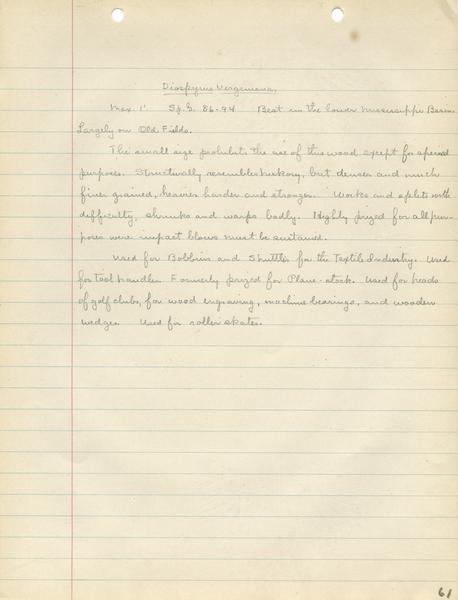 Diospyrus Virginiana,
Max. 1' Sp. G. 86-94 Best in the lower Mississippi Basin
Largely on Old Fields.
The small size prohibits the use of this wood except for special
purposes. Structurally resembles hickory, but denser and much
finer grained, heavier harder and stronger. Works and splits with
difficulty, shrinks and warps badly. Highly prized for all pur-
poses were impact blows must be sustained.
Used for Bobbins and Shuttles for the Textile Industry. Used
for Tool handles. Formerly prized for Plane-stock. Used for heads
of golf clubs, for wood engraving, machine bearings, and wooden
wedges. Used for roller skates.
61